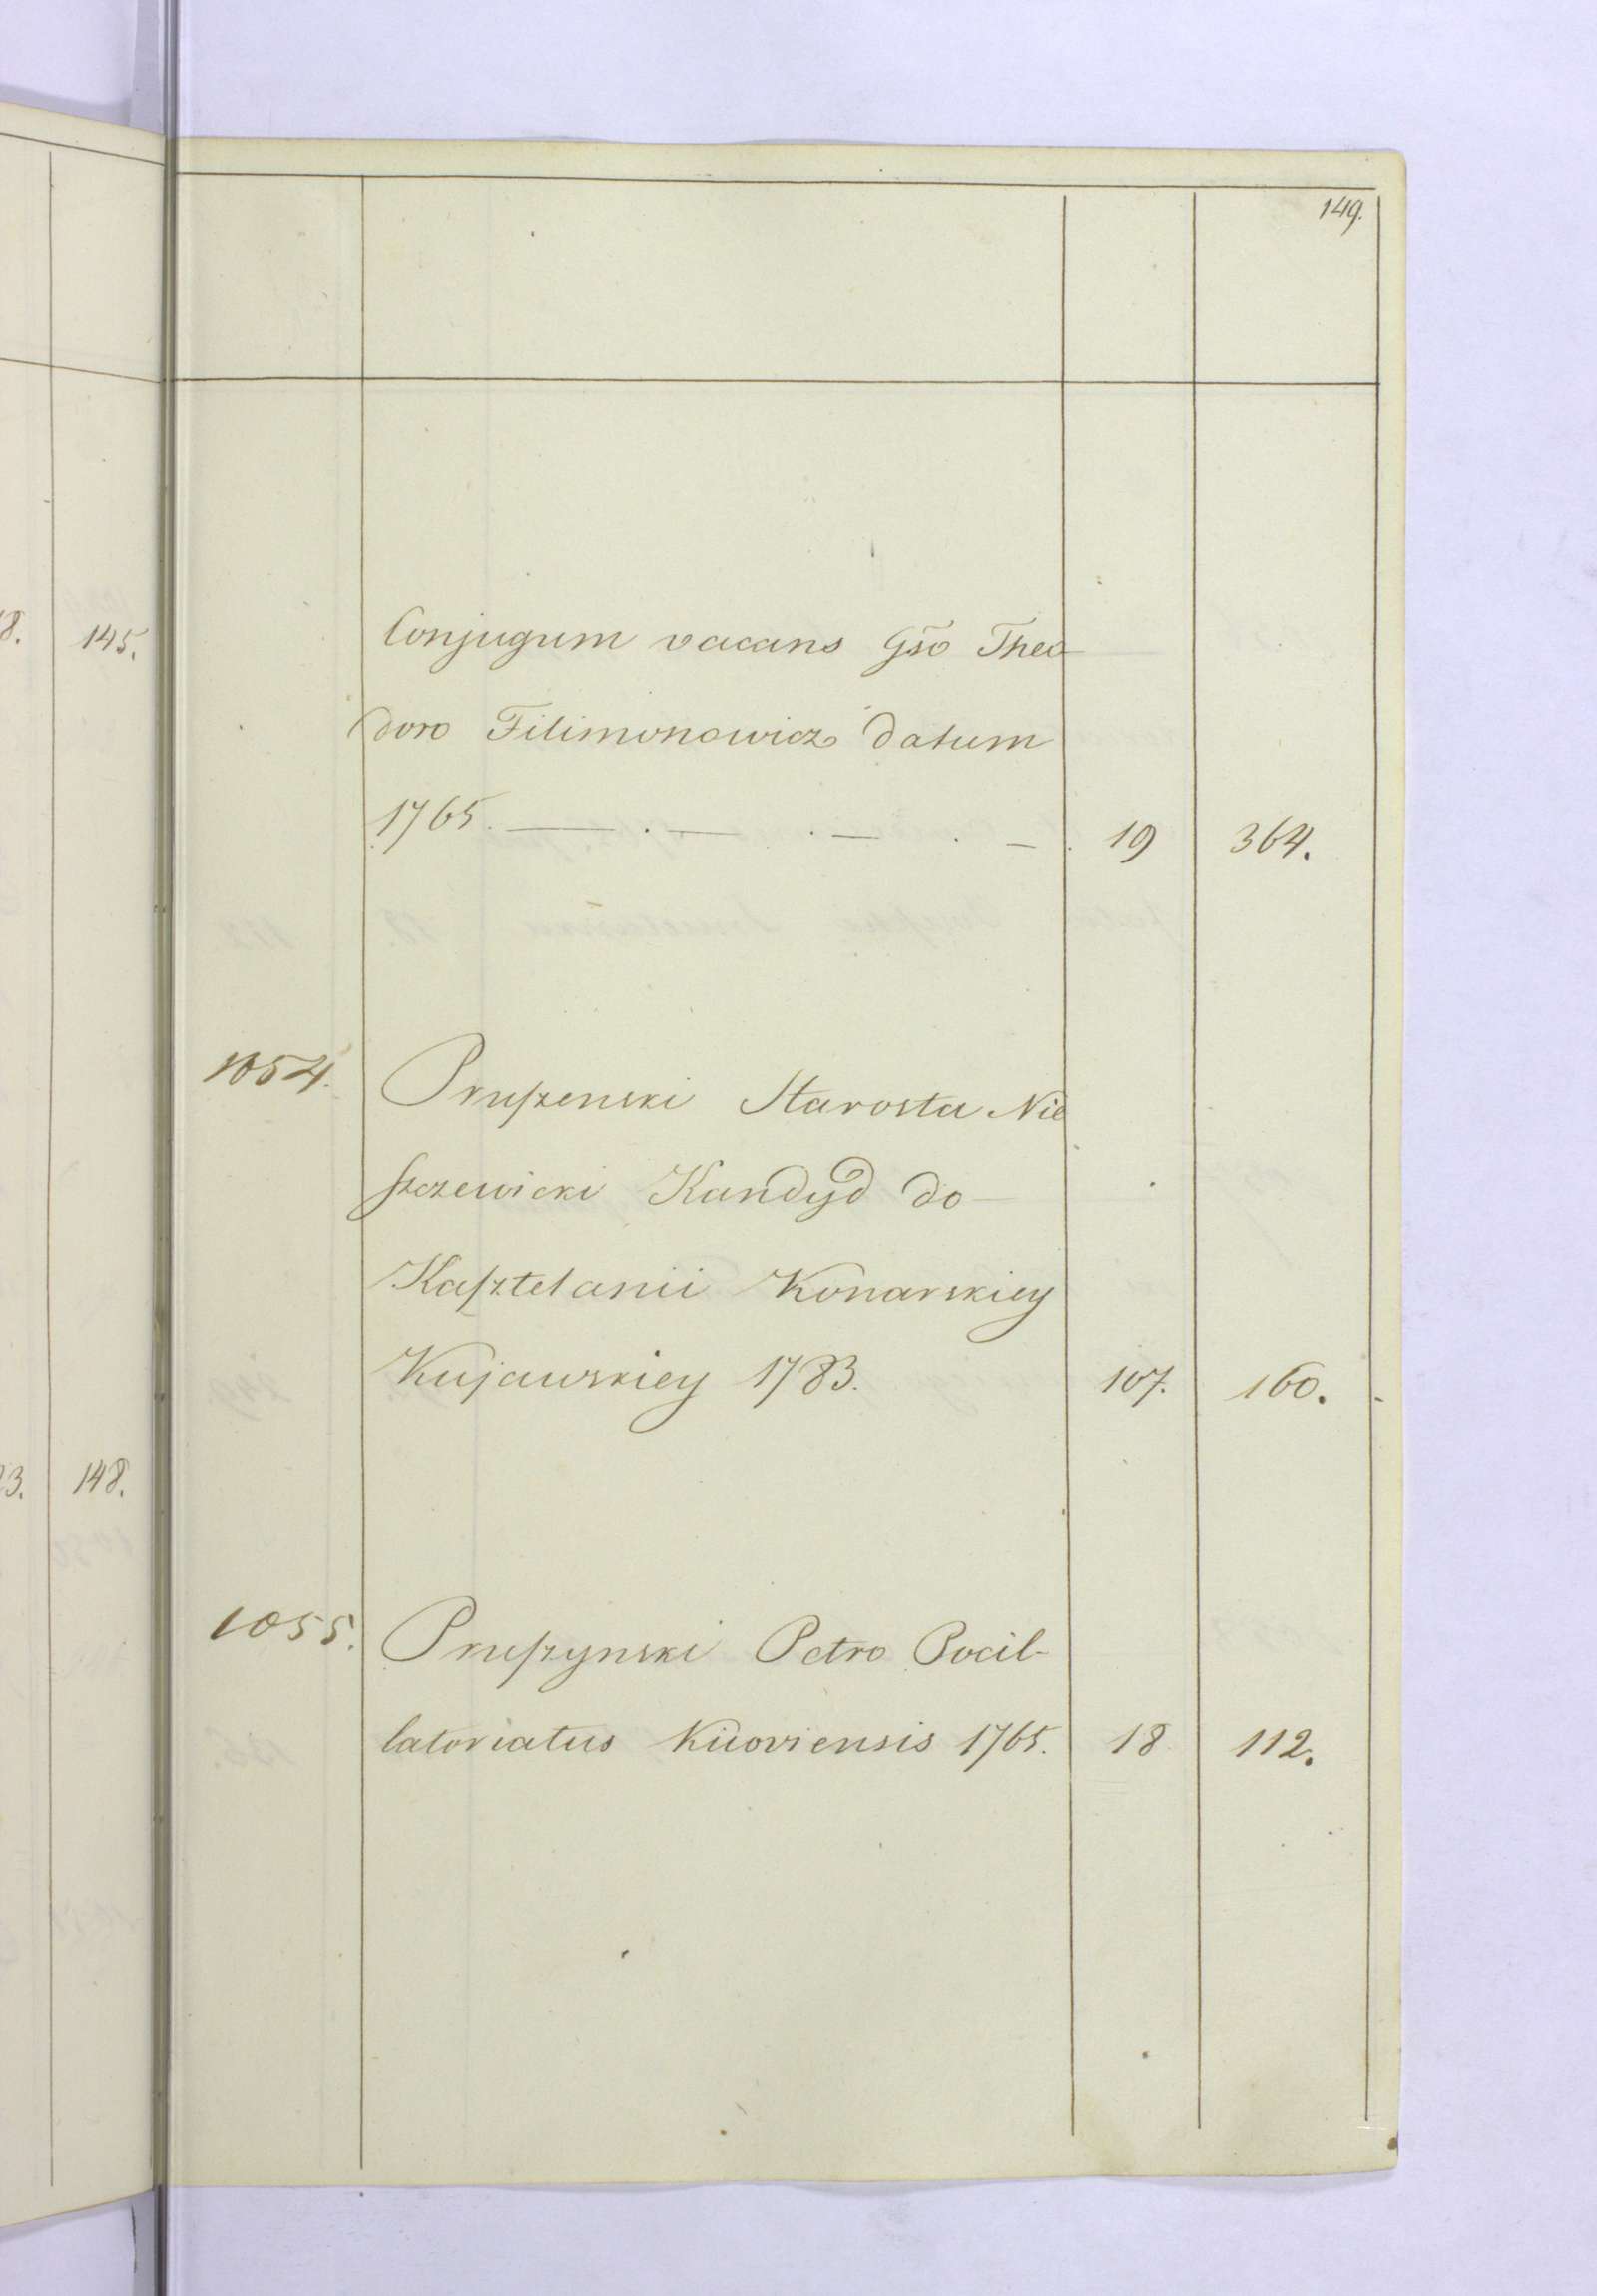 149.
8. 145.
Conjugum vacans Gso Theo
doro Filimonowicz datum
1765. — . — . — . — . 19 364.
1054. Pruſzenski Starosta Nie
ſzczewicki Kandyd do —
Kaſztelanii Konarskiey
Kujawskiey 1783. 107. 160.
3. 148.
1055. Pruſzynski Petro Pocil-
latoriatus Kiioviensis 1765. 18 112.